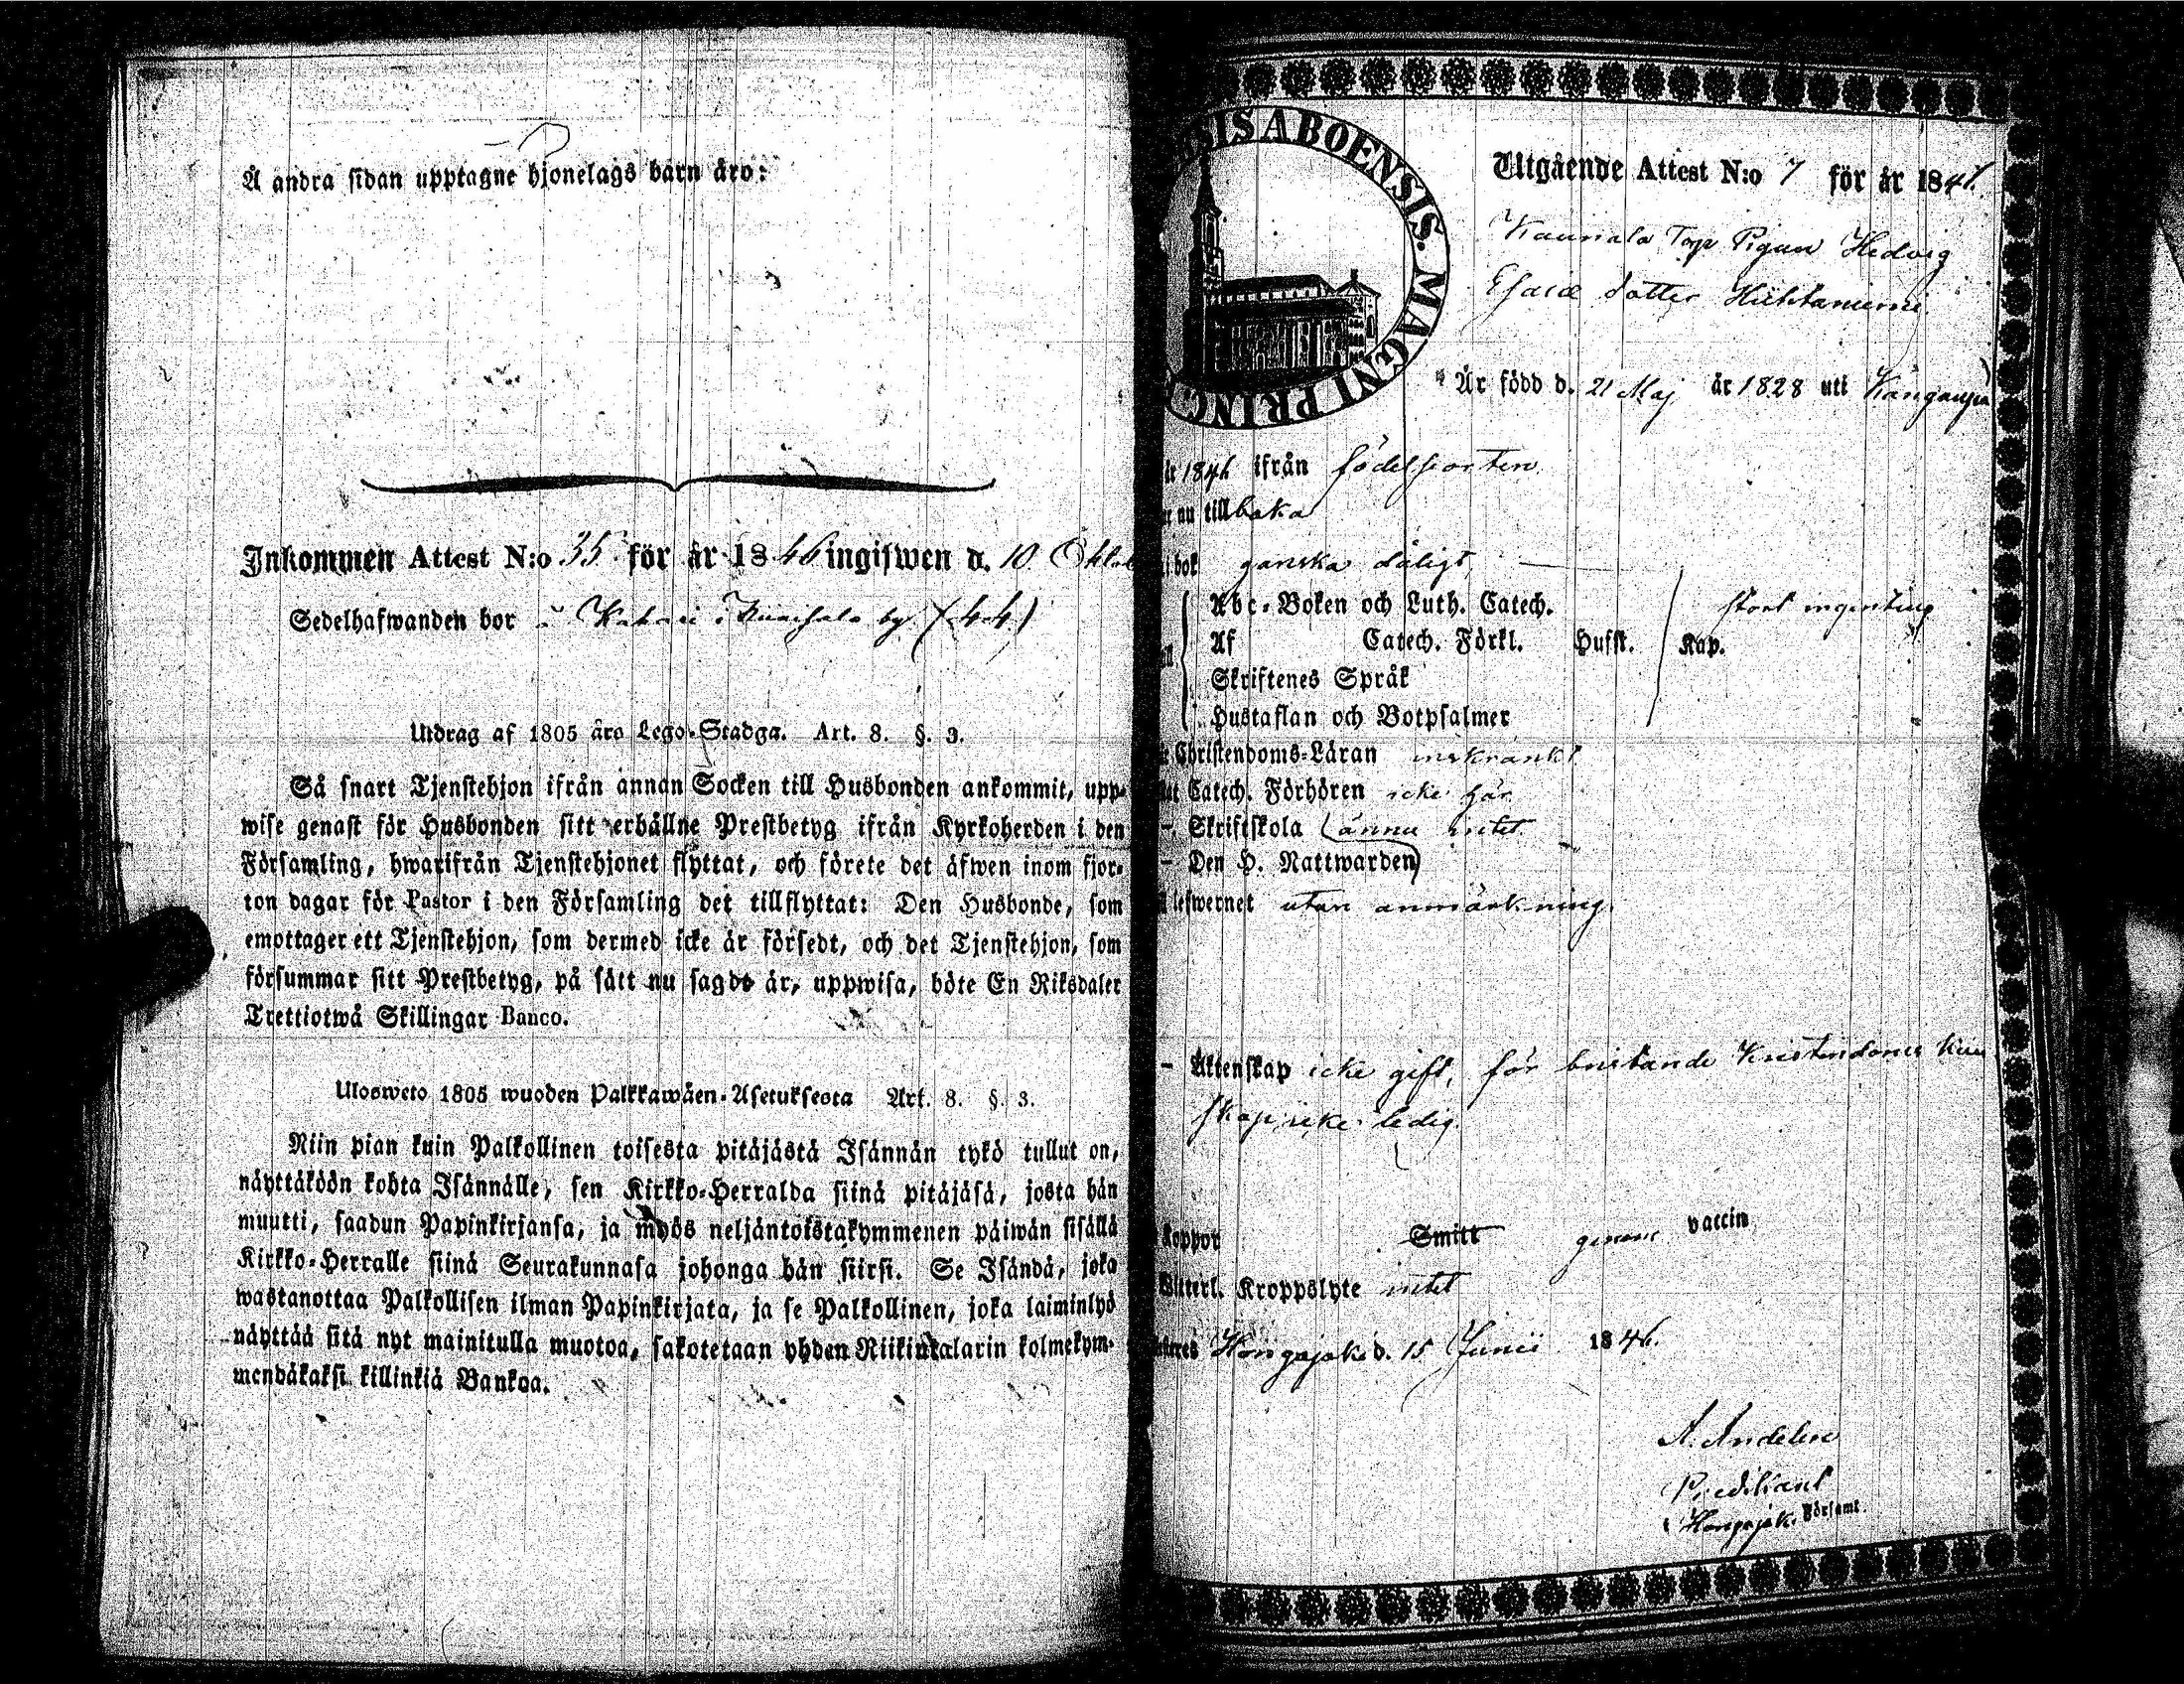 Å andra sidan upptagne hjonelags barn äro:
Inkommen Attest N:o 35 för år 1846 ingiswen d. 10 Oktob
Sedelhafwanden bor by (44)
Utdrag af 1805 års Lego-Stadga. Art. 8. §. 3.
Så snart Tjenstehjon ifrån annan Socken till Husbonden ankommit, upp-
wise genast för Husbonden sitt erhållne Prestbetyg ifrån Kyrkoherden i den
Församling, hwarifrån Tjenstehjonet flyttat, och förete det äfwen inom fjor-
ton dagar för Pastor i den Församling det tillflyttat: Den Husbonde, som
emottager ett Tjenstehjon, som dermed icke är försedt, och det Tjenstehjon, som
försummar sitt Prestbetyg, på sätt nu sagdt är, uppwisa, böte En Riksdaler
Trettiotwå Skillingar Banco.
Ulosweto 1805 wuoden Palkkawäen-Asetuksesta Art. 8. §. 3.
Niin pian kuin Palkollinen toisesta pitäjästä Isännän tykö tullut on,
näyttäköön kohta Isännälle, sen Kirkko-Herralda siinä pitäjäsä, josta hän
muutti, saadun Papinkirjansa, ja myös neljäntoistakymmenen päiwän sisällä
Kirkko-Herralle siinä Seurakunnasa johonga hän siirsi. Se Isändä, joka
wastanottaa Palkollisen ilman Papinkirjata, ja se Palkollinen, joka laiminlyö
näyttää sitä nyt mainitulla muotoa, sakotetaan yhden Riikintalarin kolmekym-
mendäkaksi killinkiä Bankoa.
SIS ABOENSIS. MAGNI PRINC
Utgående Attest N:o 7 för år 184
Pigan Hedvig
Esaiæ dotter
Är född d. 21 Maj år 1828 uti
år 1846 ifrån födelseorten
nu tillbaka
i bok ganska dåligt,
Abc-Boken och Luth. Catech. stort ingenting
Af Catech. Förkl. Hufst. Kap.
Skriftenes Språk
Hustaflan och Botpsalmer
Christendoms-Läran inskränkt
Catech. Förhören icke här
- Skriftskola ännu intet
- Den H. Nattwarden
lefwernet utan anmärkning.
- Äktenskap icke gift, för bristande Kristendoms kun
skap icke ledig.
koppor Smitt genom vaccin
Witterl. Kroppslyte intet
Hongajoki d. 15 Junii 1846.
A. Andelin
Predikant
Hongajok. Förfaml.